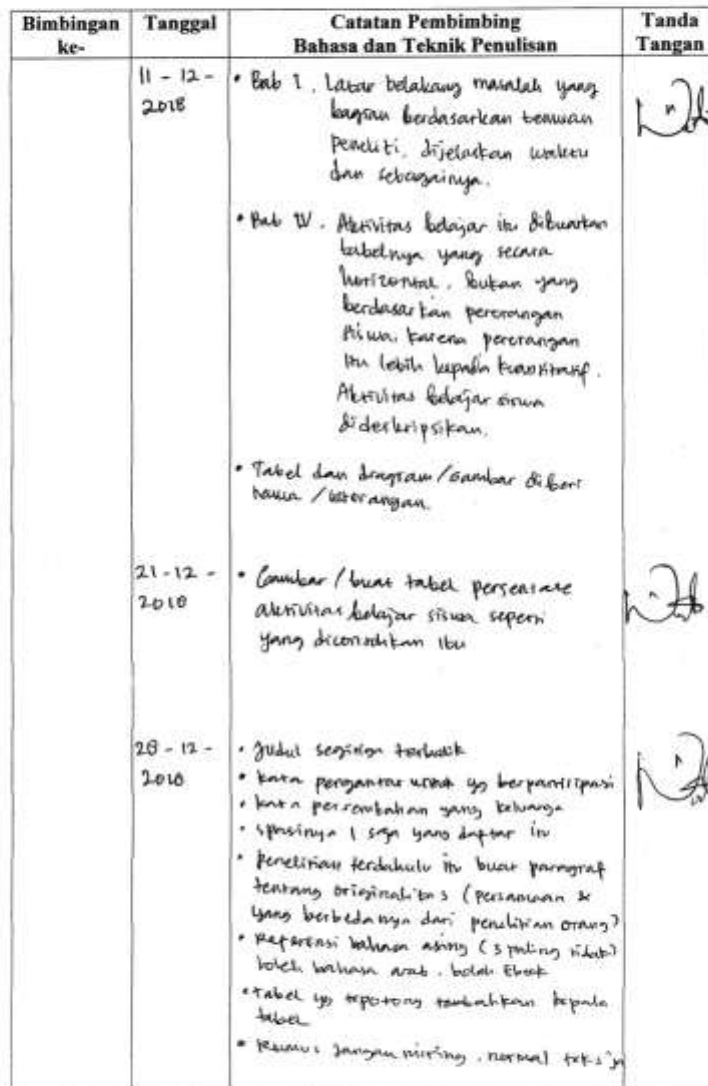 Bimbingan ke-
Tanggal
Catatan Pembimbing
Bahasa dan Teknik Penulisan
Tanda Tangan
11 - 12 -
2018
• Bab I. Latar belakang masalah yang
bagian berdasarkan temuan
Peneliti. dijelaskan waktu
dan sebagainya.
• Bab IV. Aktivitas belajar itu dibuatkan
tabelnya yang secara
horizontal. Bukan yang
berdasarkan perorangan
siswa. karena perorangan
itu lebih kepada kuantitatif.
Aktivitas Belajar siswa
dideskripsikan.
• Tabel dan diagram/Gambar diberi
nama / keterangan.
21 - 12 -
2018
• Gambar / buat tabel persentase
aktivitas belajar siswa seperti
yang dicontohkan Ibu
28 - 12 -
2018
• Judul segitiga terbalik
• kata pengantar untuk yg berpartisipasi
• kata persembahan yang keluarga
• spasinya 1 saja yang daftar itu
• Penelitian terdahulu itu buat paragraf
tentang originalitas (persamaan &
yang berbedanya dari penelitian orang)
• Referensi bahasa asing (3 paling tidak)
boleh bahasa arab. boleh Ebook
• Tabel yg terpotong tambahkan kepala
tabel
• Rumus jangan miring. normal teksnya